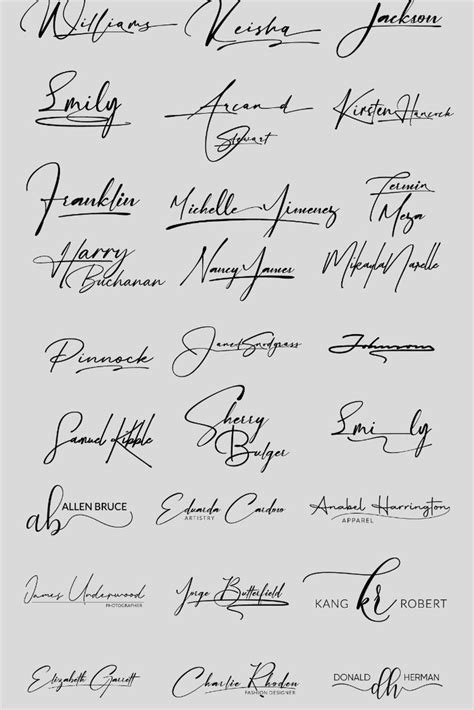 Williams Keisha Jackson
Emily Arcand Kirsten Hancock
Stewart
Franklin Michelle Jimenez Fermin
Meza
Harry Nancy James Mikayla Narelle
Buchanan
Pinnock Jane Snodgrass Johnson
Samuel Kibble Sherry Emily
Bulger
ab ALLEN BRUCE Eduarda Cardoso Anabel Harrington
ARTISTRY APPAREL
James Underwood Jorge Butterfield KANG kr ROBERT
PHOTOGRAPHER
Elizabeth Garrett Charlie Rhoden DONALD dh HERMAN
FASHION DESIGNER